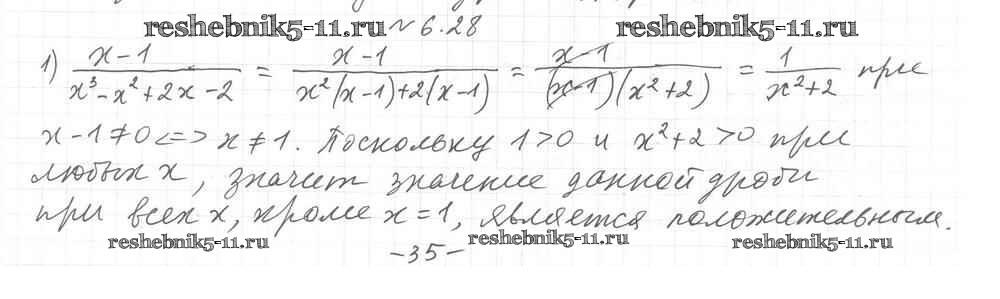 reshebnik5-11.ru № 6.28 reshebnik5-11.ru
1) (x-1)/(x³-x²+2x-2) = (x-1)/(x²(x-1)+2(x-1)) = (x-1)/((x-1)(x²+2)) = 1/(x²+2) при
x-1≠0 <=> x≠1. Поскольку 1>0 и x²+2>0 при
любых x, значит значение данной дроби
при всех x, кроме x=1, является положительным.
reshebnik5-11.ru -35- reshebnik5-11.ru reshebnik5-11.ru